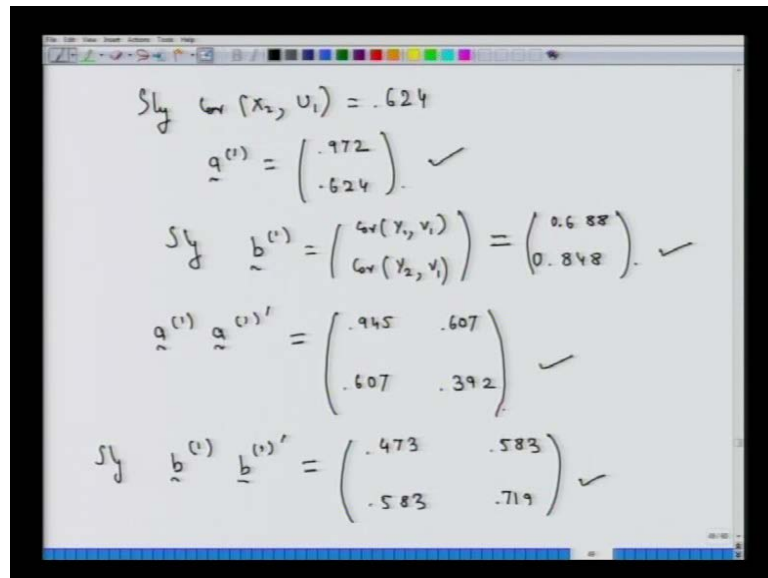 File Edit View Insert Actions Tools Help
Sly Cov (X₂, U₁) = .624
a⁽¹⁾ = ( .972 .624 ). ✓
Sly b⁽¹⁾ = ( Cov(Y₁, V₁) Cov(Y₂, V₁) ) = ( 0.688 0.848 ). ✓
a⁽¹⁾ a⁽¹⁾′ = ( .945 .607 .607 .392 ). ✓
Sly b⁽¹⁾ b⁽¹⁾′ = ( .473 .583 .583 .719 ) ✓